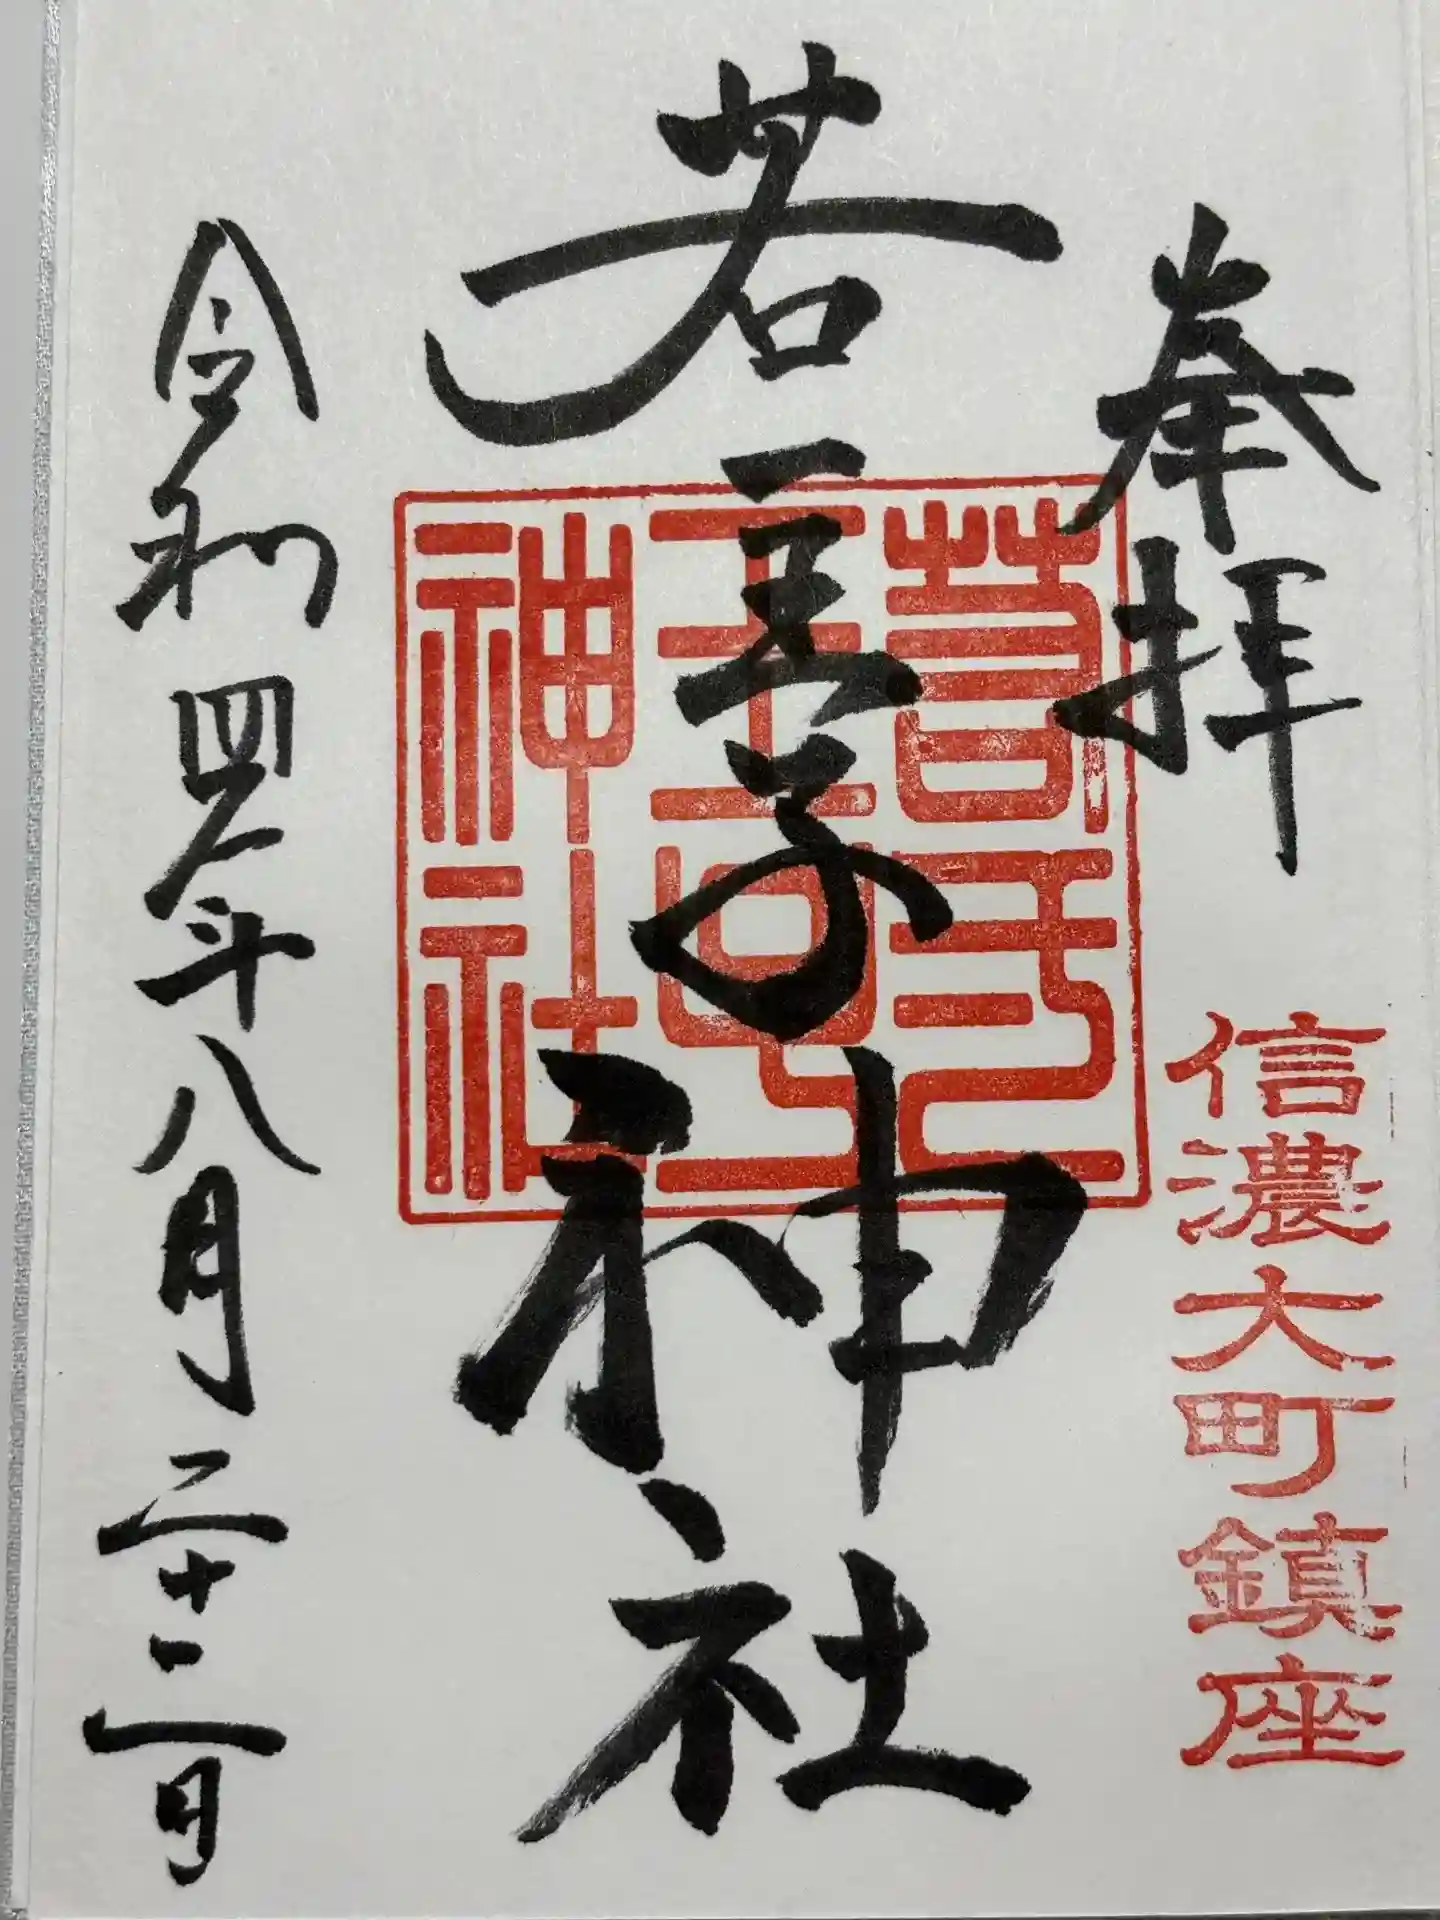 奉拝
信濃大町鎮座
若一王子神社
若弌
王子
神社
令和四年八月二十二日